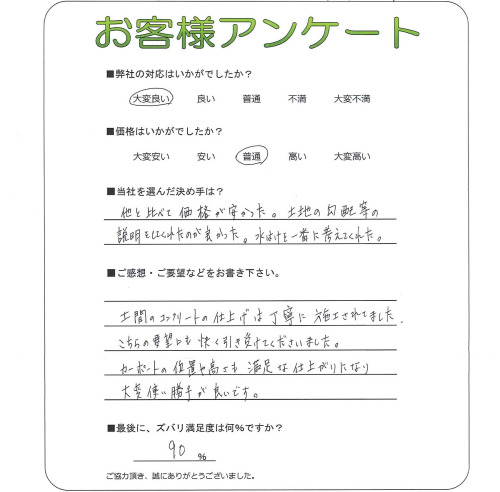 お客様アンケート
■弊社の対応はいかがでしたか?
大変良い 良い 普通 不満 大変不満
■価格はいかがでしたか?
大変安い 安い 普通 高い 大変高い
■当社を選んだ決め手は?
他と比べて価格が安かった。土地の勾配等の
説明をしてくれたのが良かった。水はけを一番に考えてくれた。
■ご感想・ご要望などをお書き下さい。
土間のコンクリートの仕上げは丁寧に施工されてました.
こちらの要望にも快く引き受けてくださいました。
カーポートの位置や高さも満足な仕上がりになり
大変使い勝手が良いです。
■最後に、ズバリ満足度は何%ですか?
90 %
ご協力頂き、誠にありがとうございました。